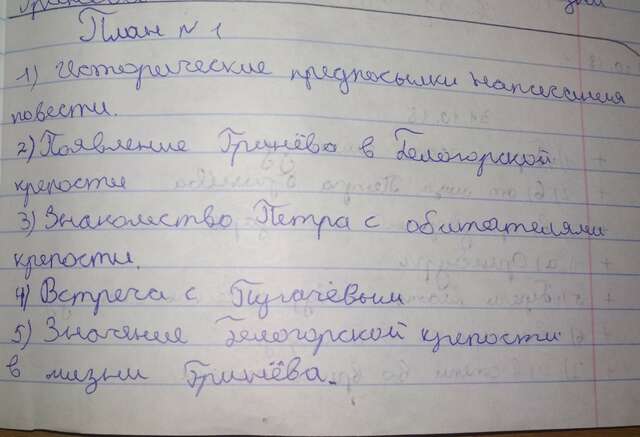 План № 1
1) Исторические предпосылки написания
повести.
2) Появление Гринёва в Белогорской
крепости
3) Знакомство Петра с обитателями
крепости.
4) Встреча с Пугачёвым
5) Значение Белогорской крепости
в жизни Гринёва.